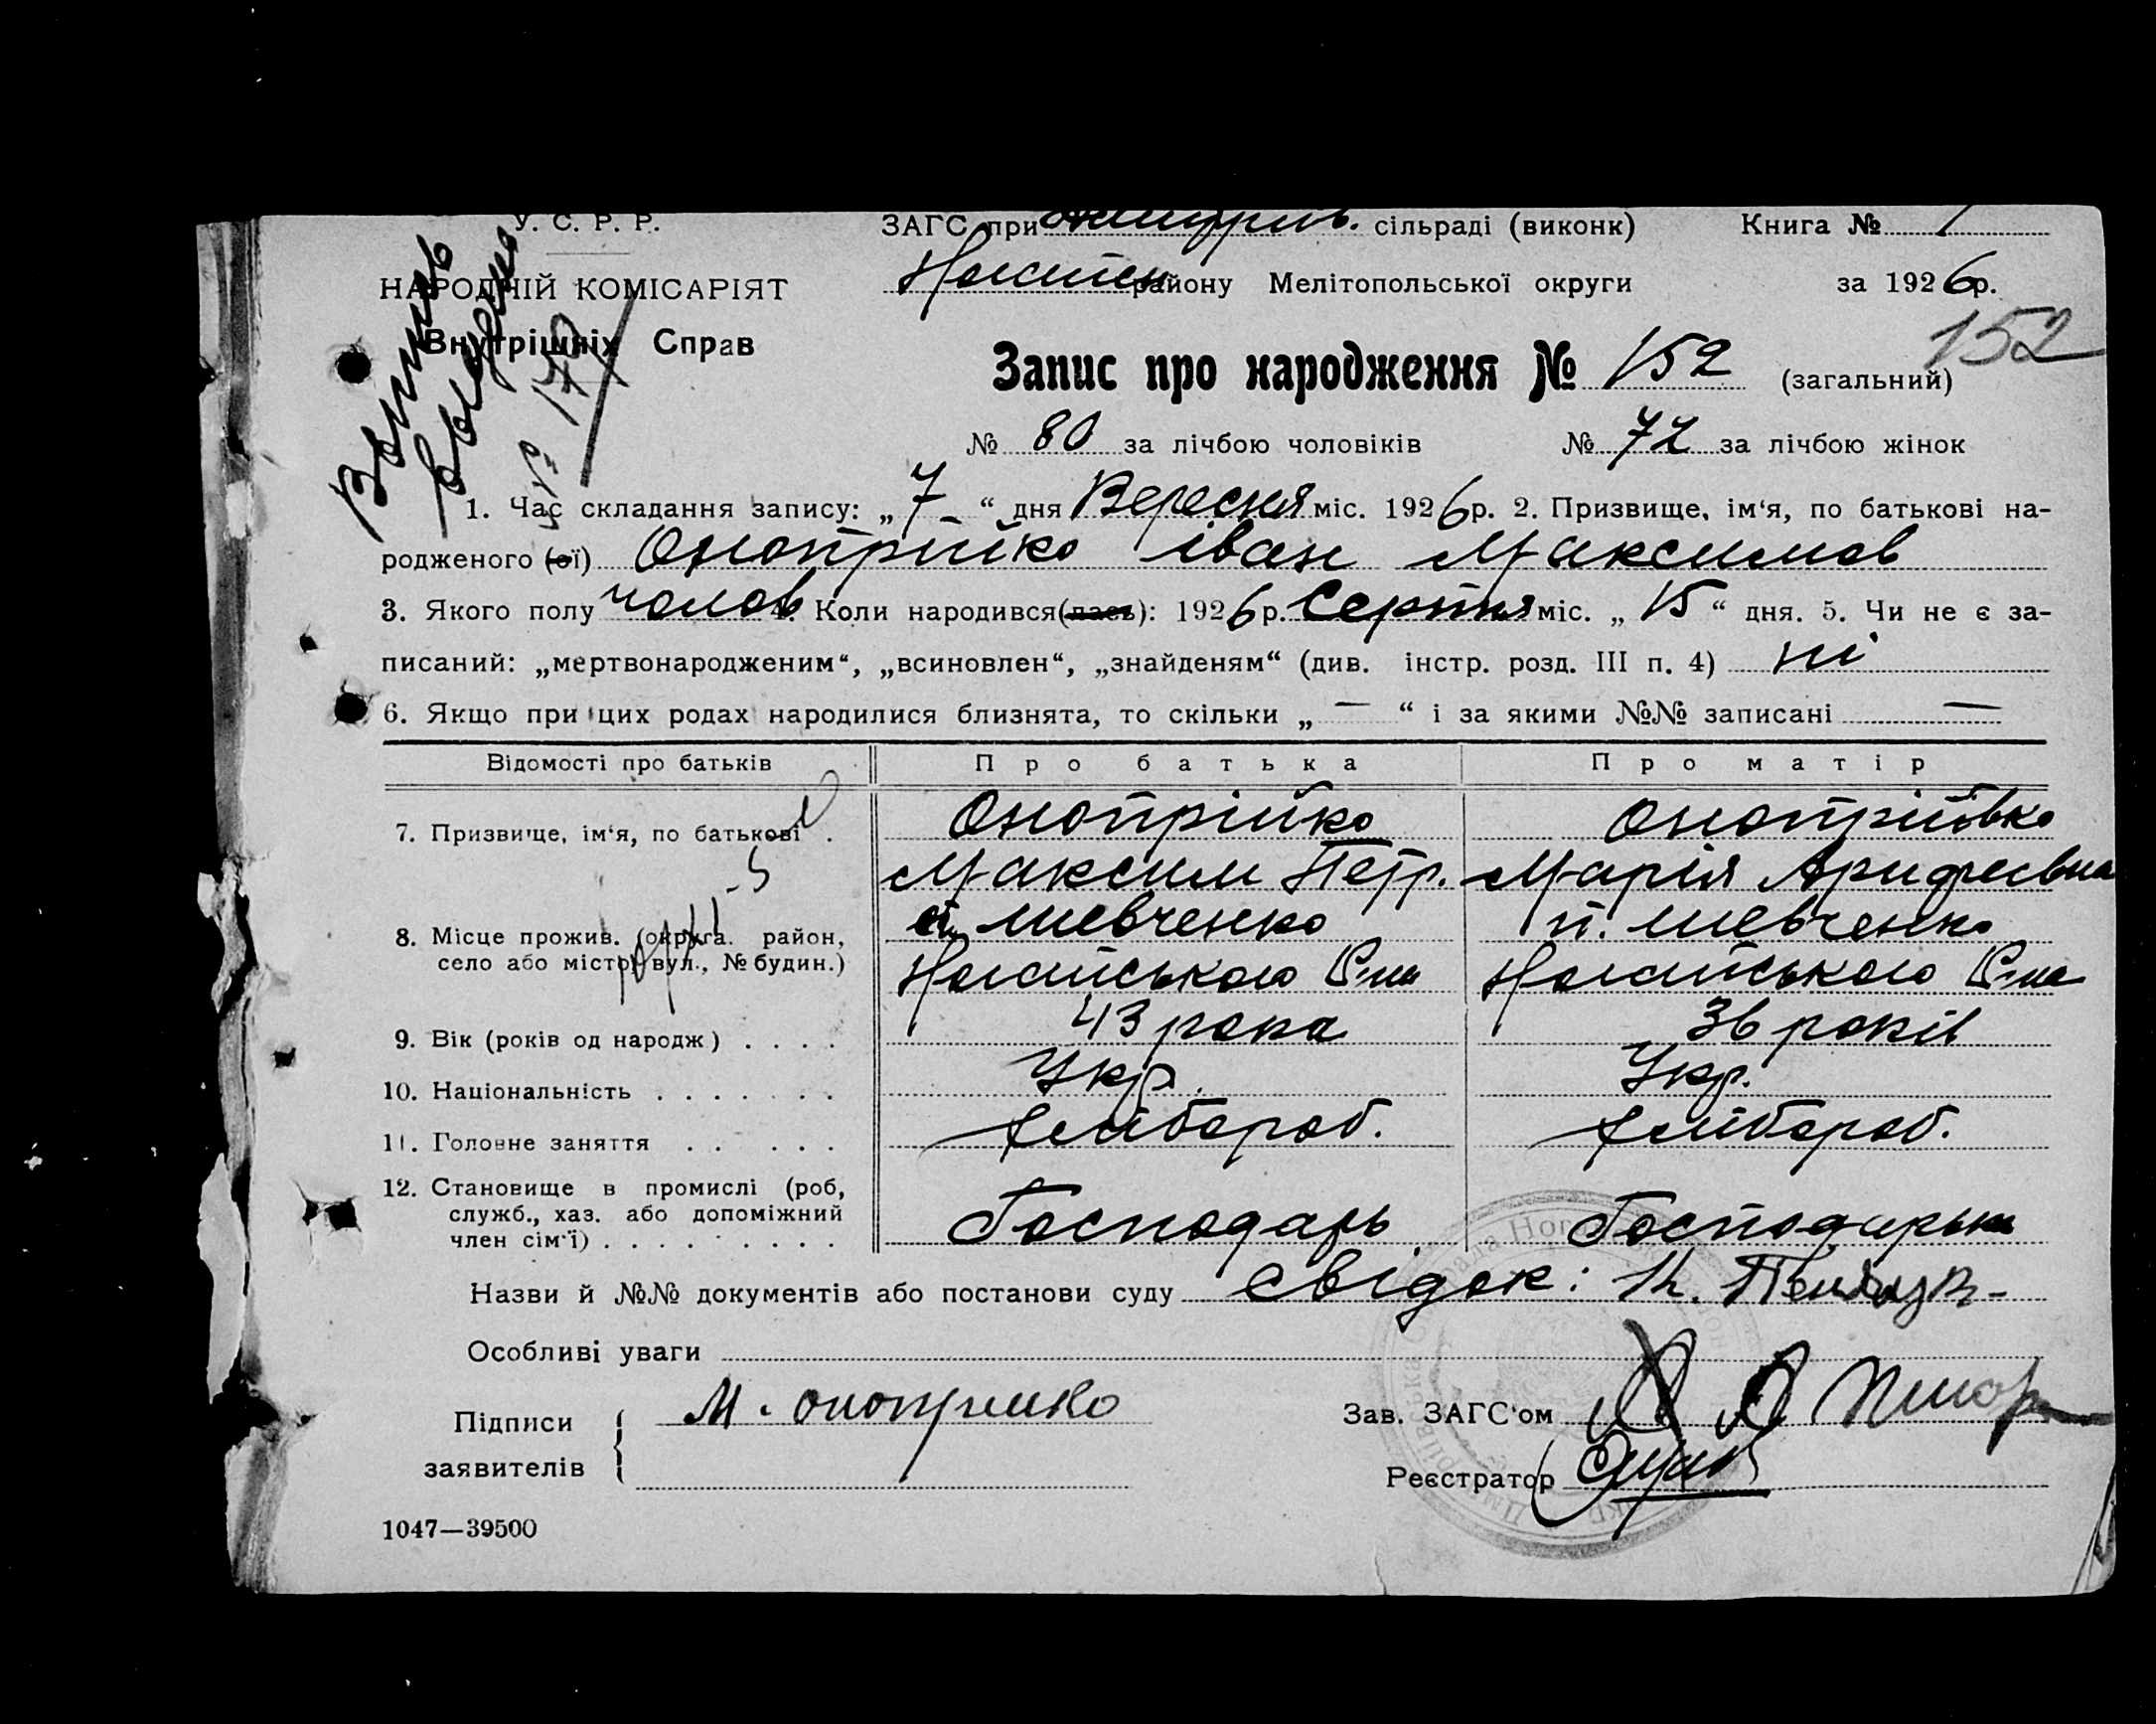 У. С. Р. Р.
НАРОДНІЙ КОМІСАРІЯТ
Внутрішніх Справ
ЗАГС при сільраді (виконк) Книга № 1
району Мелітопольської округи за 1926р.
152
Запис про народження № 152 (загальний)
№ 80 за лічбою чоловіків № 72 за лічбою жінок
1. Час складання запису: „7“ дня Вересня міс. 1926р. 2. Призвище, ім‘я, по батькові на-
родженого (ої) Онопрійко Іван Максимов
3. Якого полу чолов 4. Коли народився(лась): 1926р. Серпня міс. „15“ дня. 5. Чи не є за-
писаний: „мертвонародженим“, „всиновлен“, „знайденям“ (див. інстр. розд. III п. 4) ні
6. Якщо при цих родах народилися близнята, то скільки „—“ і за якими №№ записані —
Відомості про батьків Про батька Про матір
7. Призвище, ім‘я, по батькові . Онопрійко Онопрійвко
Максим Петр. Марія
8. Місце прожив. (округа. район, Шевченко п. Шевченко
село або місто, вул., № будин.) Ногайського Р-на Ногайського Р-на
9. Вік (років од народж) . . . . 43 рока 36 років
10. Національність . . . . . . . Укр. Укр.
11. Головне заняття . . . . . хлібороб. хлібороб.
12. Становище в промислі (роб,
служб., хаз. або допоміжний
член сім‘ї) . . . . . . . . . Господарь Господарька
Назви й №№ документів або постанови суду Свідок:
Особливі уваги
Підписи М. Онопрійко Зав. ЗАГС‘ом
заявителів Реєстратор
1047—39500